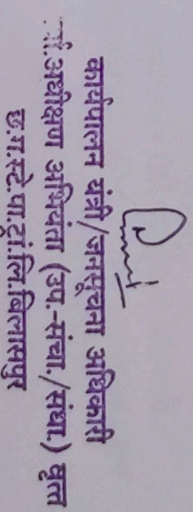 कार्यपालन यंत्री/जनसूचना अधिकारी
अधीक्षण अभियंता (उप.-संचा./संधा.) वृत्त
छ.ग.स्टे.पा.ट्रां.लि.बिलासपुर